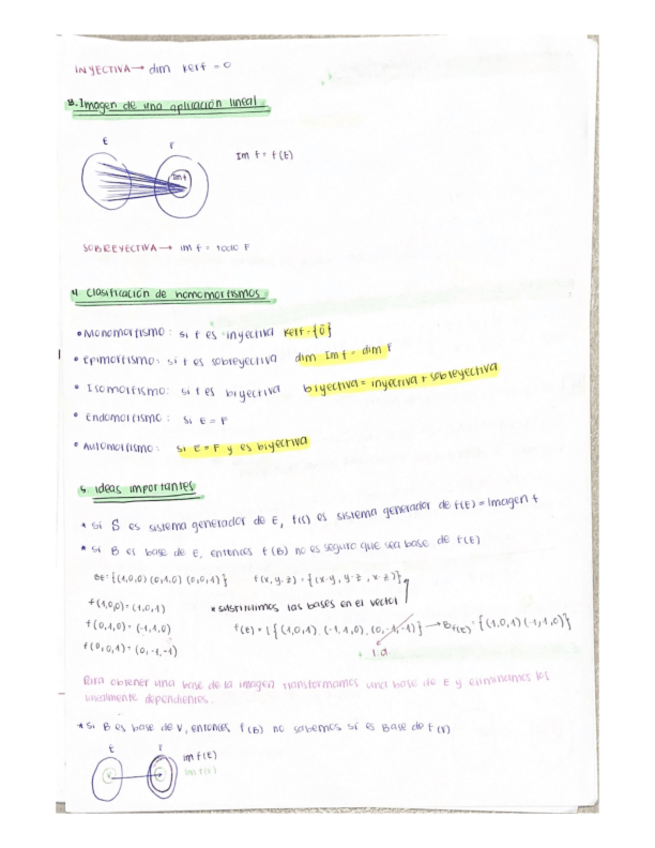 INYECTIVA → dim Kerf = 0
3. Imagen de una aplicación lineal
E F
Im f
Im f = f(E)
SOBREYECTIVA → im f = todo F
4 Clasificación de homomorfismos
• Monomorfismo: si f es inyectiva Kerf={0}
• Epimorfismo: si f es sobreyectiva dim Im f = dim F
• Isomorfismo: si f es biyectiva biyectiva = inyectiva + sobreyectiva
• Endomorfismo: si E = F
• Automorfismo: si E = F y es biyectiva
5 Ideas importantes
* Si S es sistema generador de E, f(S) es sistema generador de f(E) = Imagen f
* Si B es base de E, entonces f(B) no es seguro que sea base de f(E)
BE={(1,0,0) (0,1,0) (0,0,1)} f(x,y,z) = {(x-y, y-z, x-z)}
f(1,0,0) = (1,0,1) * sustituimos las bases en el vector
f(0,1,0) = (-1,1,0) f(E) = L{(1,0,1), (-1,1,0), (0,-1,-1)} → Bf(E) = {(1,0,1)(-1,1,0)}
f(0,0,1) = (0,-1,-1) l.d
Para obtener una base de la imagen transformamos una base de E y eliminamos los
linealmente dependientes.
* Si B es base de V, entonces f(B) no sabemos si es Base de f(V)
E F
im f(E)
V
im f(V)